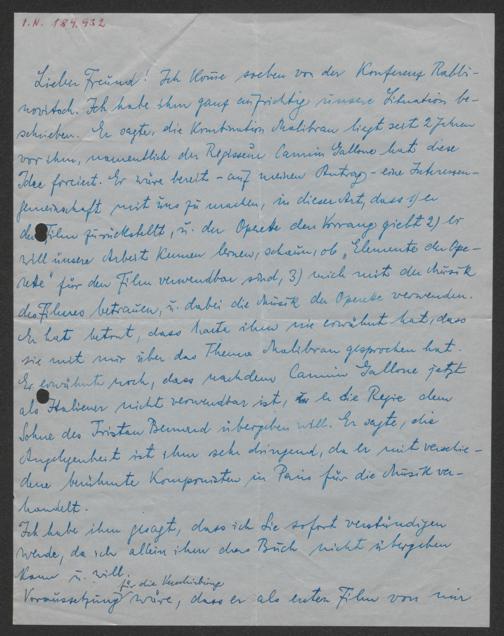 I.N. 189.932
Lieber Freund! Ich komme soeben von der Konferenz Rabbi-
novitsch. Ich habe ihm ganz aufrichtig unsere Situation be-
schrieben. Er sagte, die Kombination Malibran liegt seit 2 Jahren
vor ihm, namentlich der Regisseur Carmin Gallone hat diese
Idee forciert. Er wäre bereit - auf meinen Antrag - eine Interessen-
gemeinschaft mit uns zu machen, in dieser Art, dass 1) er
den Film zurückstellt, u. der Operette den Vorrang giebt 2) er
will unsere Arbeit kennen lernen, schaun, ob "Elemente der Ope-
rette" für den Film verwendbar sind, 3) mich mit der Musik
des Filmes betrauen, u. dabei die Musik der Operette verwenden.
Er hat betont, dass ihm nie erwähnt hat, dass
sie mit mir über das Thema Malibran gesprochen hat.
Er erwähnte noch, dass nachdem Carmin Gallone jetzt
als Italiener nicht verwendbar ist, er die Regie dem
Sohne des Tristan Bernard übergeben will. Er sagte, die
Angelegenheit ist ihm sehr dringend, da er mit verschie-
dene berühmte Komponisten in Paris für die Musik ver-
handelt.
Ich habe ihm gesagt, dass ich Sie sofort verständigen
werde, da ich allein ihm das Buch nicht übergeben
kann u. will.
für die
Voraussetzung wäre, dass er als ersten Film von mir